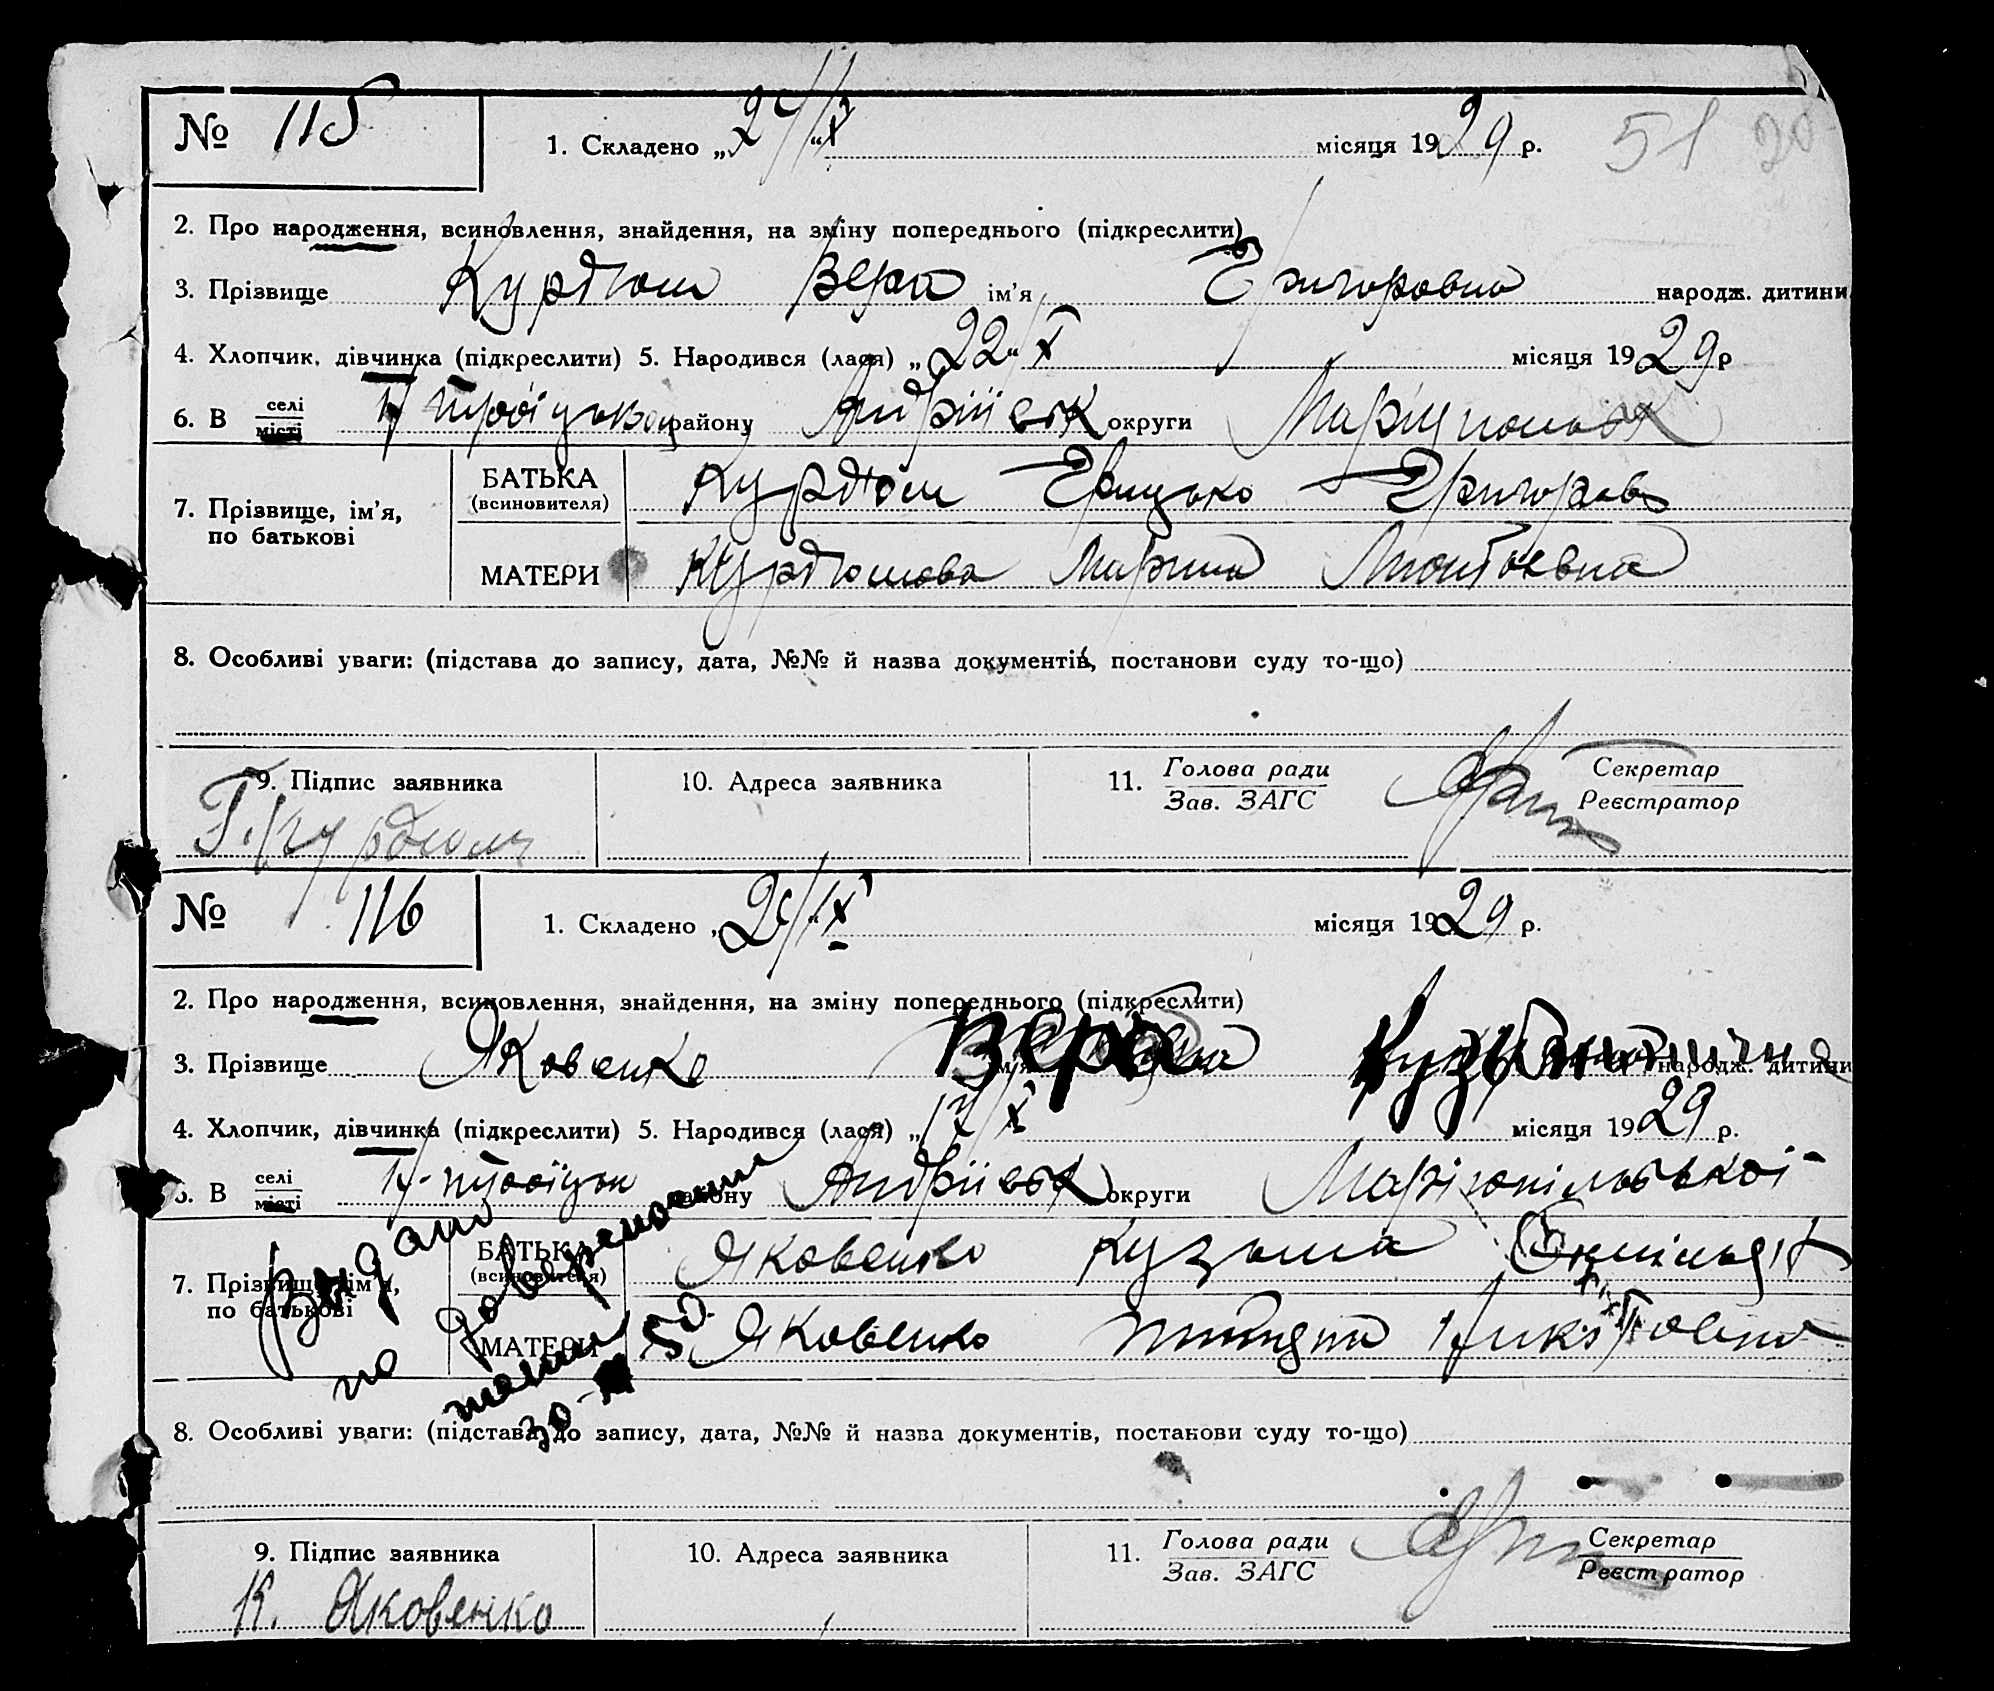 № 115
1. Складено „24/X“ місяця 1929 р.
51 20
2. Про народження, всиновлення, знайдення, на зміну попереднього (підкреслити)
3. Прізвище Курдюм Вера ім'я Григоровна народж. дитини
4. Хлопчик, дівчинка (підкреслити) 5. Народився (лася) „22“ X місяця 1929 р
6. В селі/місті району Андріївск округи
7. Прізвище, ім'я, по батькові
БАТЬКА (всиновителя) Курдюм Грицько Григоров
МАТЕРИ Курдюмова Марина
8. Особливі уваги: (підстава до запису, дата, №№ й назва документів, постанови суду то-що)
9. Підпис заявника
10. Адреса заявника
11. Голова ради / Зав. ЗАГС
Секретар / Реєстратор
Г. Курдюм
№ 116
1. Складено „ X місяця 1929 р.
2. Про народження, всиновлення, знайдення, на зміну попереднього (підкреслити)
3. Прізвище Яковенко Вера народж. дитини
4. Хлопчик, дівчинка (підкреслити) 5. Народився (лася) „ X місяця 1929 р.
6. В селі/місті району Андріївск округи Маріюпільськоі
7. Прізвище, ім'я, по батькові
БАТЬКА (всиновителя) Яковенко Кузьма
МАТЕРИ Яковенко
Видано
по
30 50
8. Особливі уваги: (підстава до запису, дата, №№ й назва документів, постанови суду то-що)
9. Підпис заявника
10. Адреса заявника
11. Голова ради / Зав. ЗАГС
Секретар / Реєстратор
К. Яковенко